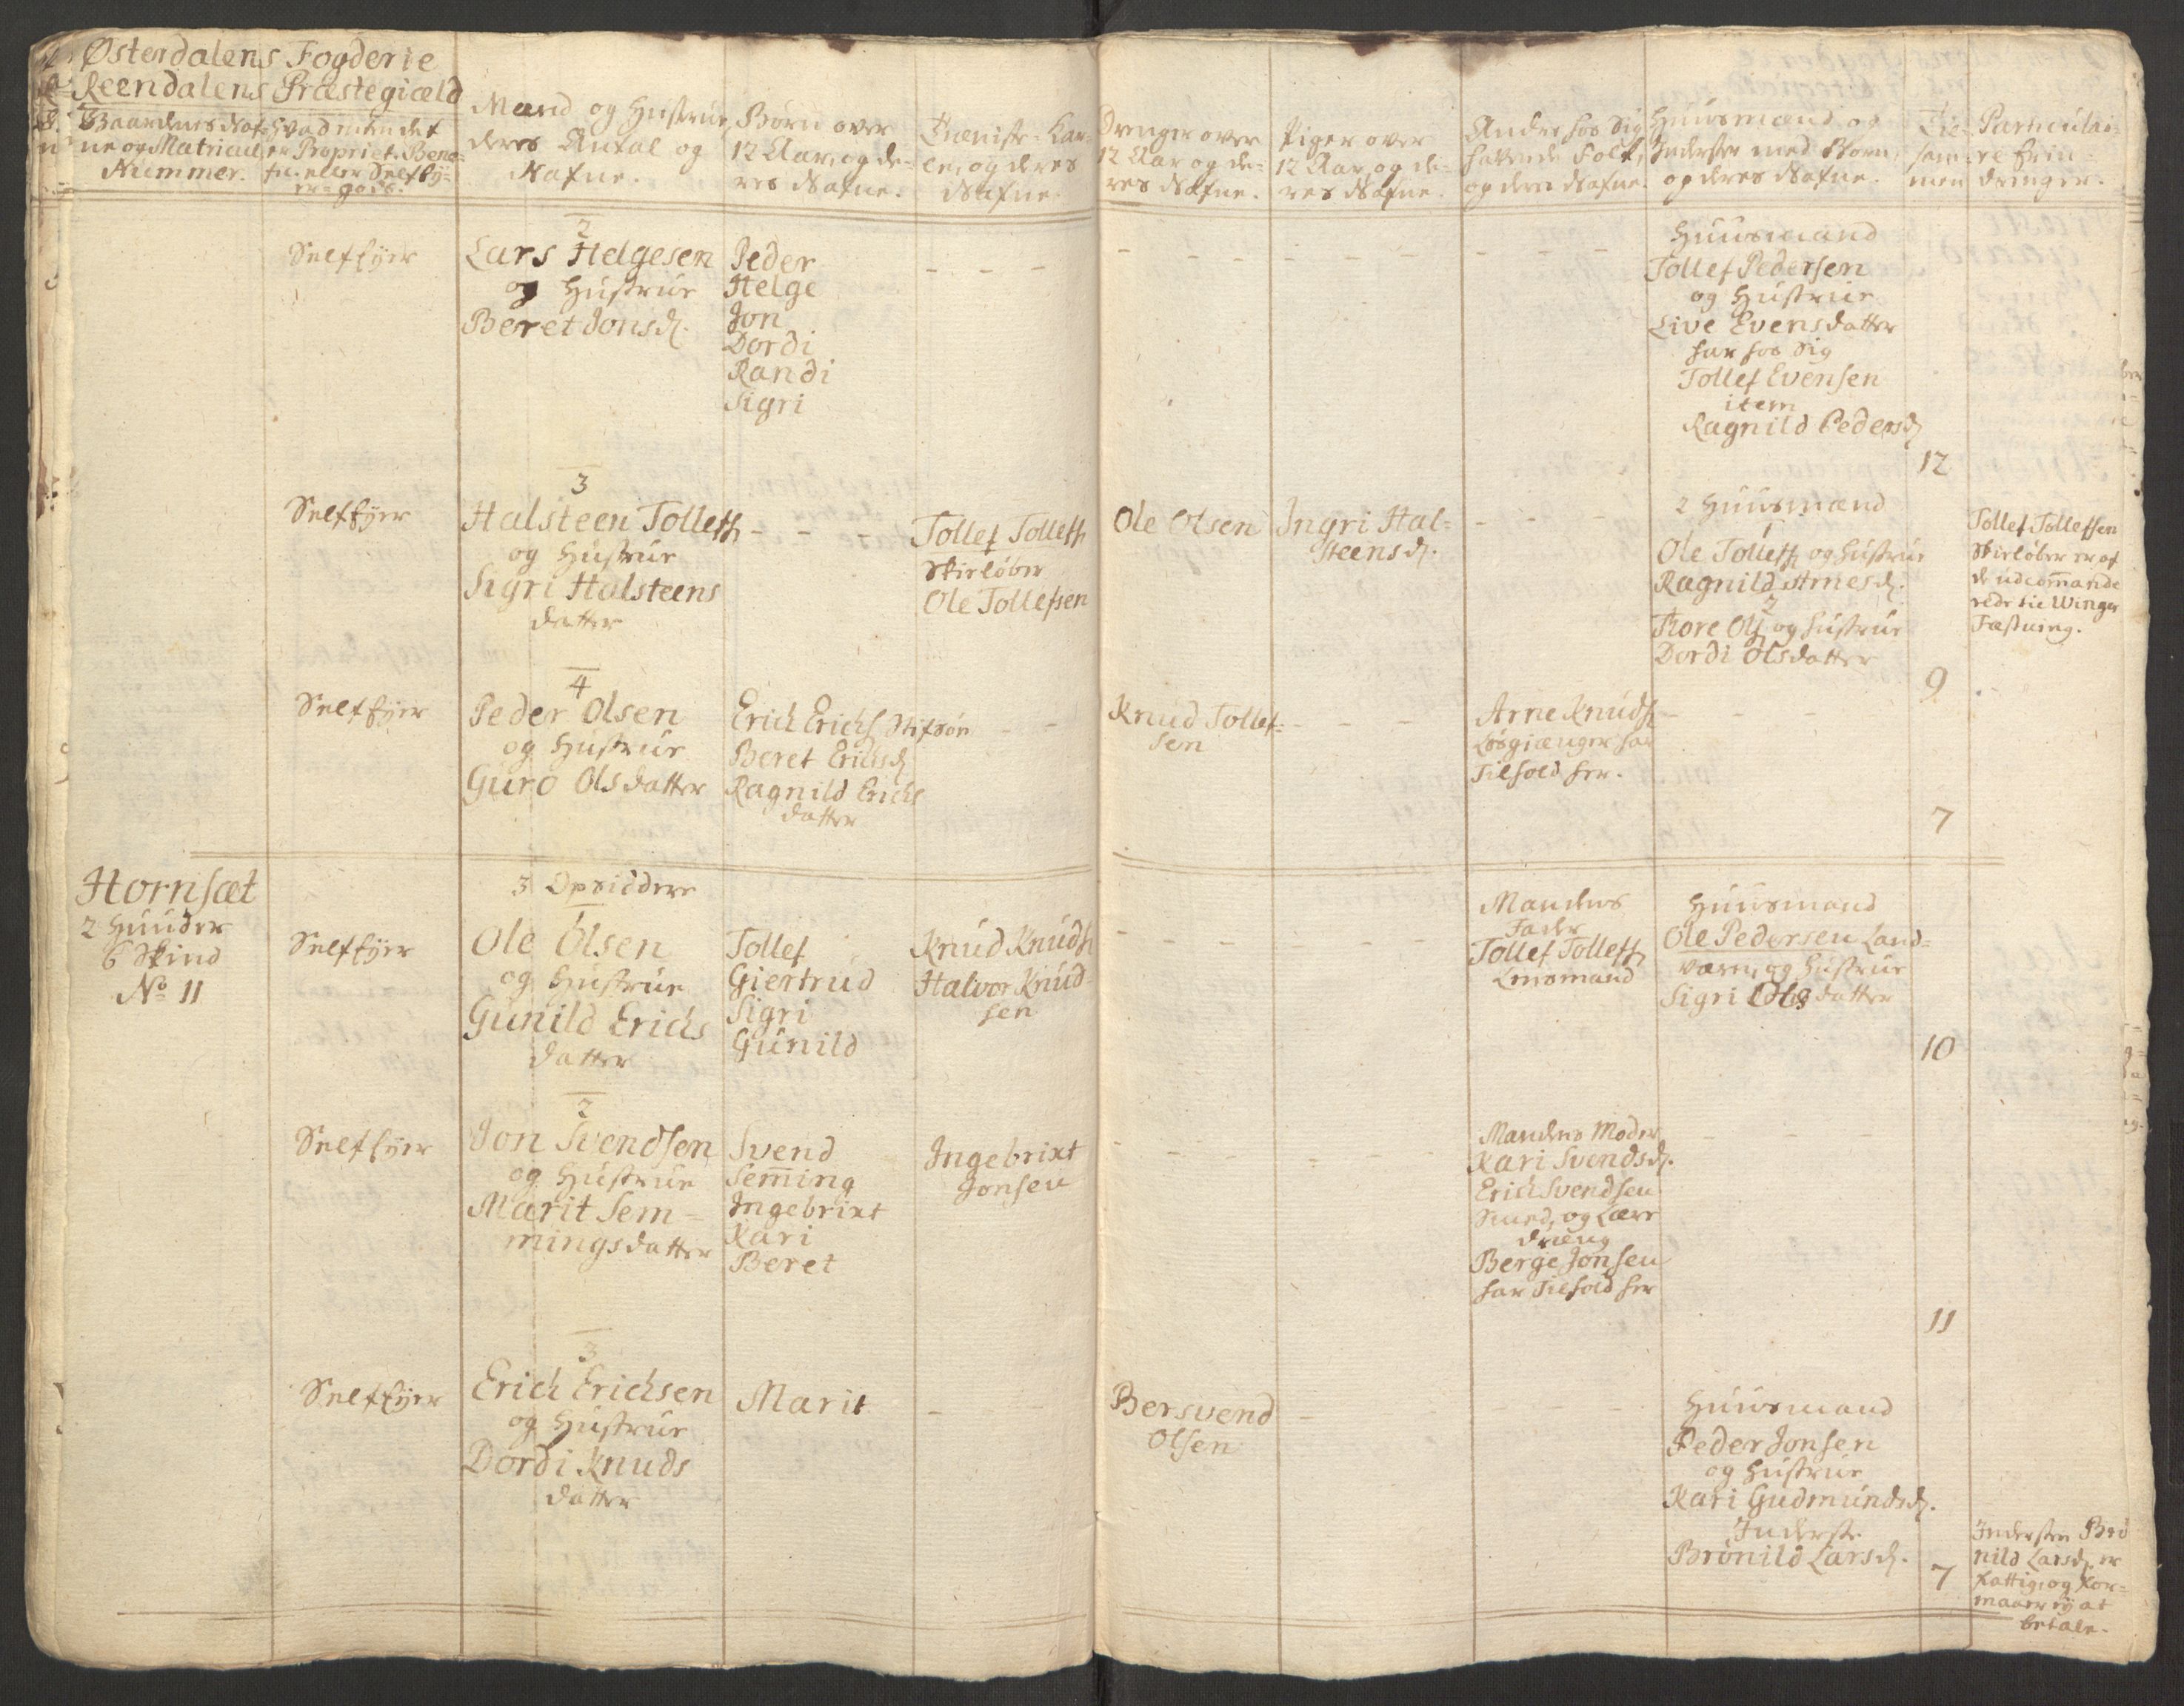 Østerdalens Fogderie
Reendalens Præstegiæld
Gaardenes Naf-
ne og Matricul
Nummer.
Hvad men det
er Propriet. Bene-
fic. eller Selvey-
er-gods.
Mand og Hustrue,
deres Antal og
Nafne.
Børn over
12 Aar, og de-
res Nafne.
Tieniste-Kar-
le, og deres
Nafne.
Drenger over
12 Aar og de-
res Nafne.
Piger over
12 Aar, og de-
res Nafne.
Andre hos Sig
havende Folk,
og deres Nafne.
Huusmænd og
Inderster med Børn,
og deres Nafne.
Til-
sam-
men
Particulai-
re Erin-
dringer.
2
Selfeyer
Lars Helgesen
og Hustrue
Beret Jonsd.
Peder
Helge
Jon
Dordi
Randi
Sigri
- - -
Huusmand
Tollef Pedersen
og Hustrue
Live Evensdatter
har hos Sig
Tollef Evensen
item
Ragnild Pedersd
12
3
Selfeyer
Halsteen Tollefs
og Hustrue
Sigri Halsteens
datter
- - -
Tollef Tollefs
Skieløber
Ole Tollefsen
Ole Olsen
Ingri Hal-
steensd.
- - -
2 Huusmænd
1
Ole Tollefs og Hustrue
Ragnild Arnesd.
2
Tore Ols og Hustrue
Dordi Olsdatter
9
Tollef Tollefsen
Skieløber er af
de udcom̄ande
rede til Winger
Fæstning.
4
Selfeyer
Peder Olsen
og Hustrue
Guro Olsdatter
Erich Erichs Stifsøn
Beret Erichsd
Ragnild Erichs
datter
Knud Tollef-
sen
- - -
Arne Knuds
Løsgiænger har
Tilhold her.
- - -
7
Hornsæt
2 Huuder
6 Skind
No 11
3 Opsiddere
1
Selfeyer
Ole Olsen
og Hustrue
Gunild Erichs
datter
Tollef
Giertrud
Sigri
Gunild
Knud Knuds
Halvor Knud-
sen
Mandens
Fader
Tollef Tollefs
Lensmand
Huusmand
Ole Pedersen Land-
værn, og Hustrue
Sigri Olsdatter
10
2
Selfeyer
Jon Svendsen
og Hustrue
Marit Sem-
mingsdatter
Svend
Sem̄ing
Ingebrixt
Kari
Beret
Ingebrixt
Jonsen
Mandens Moder
Kari Svendsd.
Erich Svendsen
Smed, og Lære
dreng
Berge Jonsen
har Tilhold her
- - -
11
3
Selfeyer
Erich Erichsen
og Hustrue
Dordi Knuds
datter
Marit
Bersvend
Olsen
Huusmand
Peder Jonsen
og Hustrue
Kari Gudmundsd.
Inderste
Brønild Larsd.
7
Indersten Brø
nild Larsd. er
fattig, og for-
maaer ey at
betale.